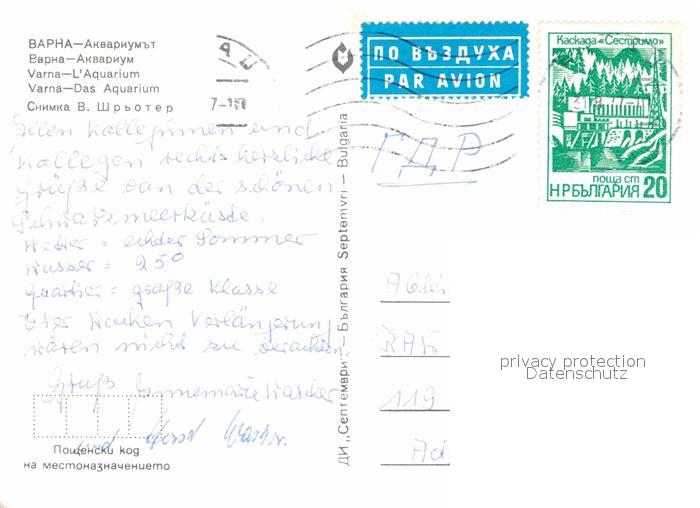 ВАРНА—Аквариумът
Варна—Аквариум
Varna—L'Aquarium
Varna—Das Aquarium
Снимка В. Шрьотер
Allen Kolleginnen und
Kollegen recht herzliche
Grüße von der schönen
Schwarzmeerküste.
Wetter = echter Sommer
Wasser = 25°
Quartier = große Klasse
Vier Wochen Verlängerung
wären nicht zu verachten.
Gruß Annemarie
und Horst
Пощенски код
на местоназначението
ДИ „Септември" — България Septemvri — Bulgaria
ПО ВЪЗДУХА
PAR AVION
Каскада „Сестримо"
поща ст
НРБЪЛГАРИЯ 20
ГДР
119
privacy protection
Datenschutz